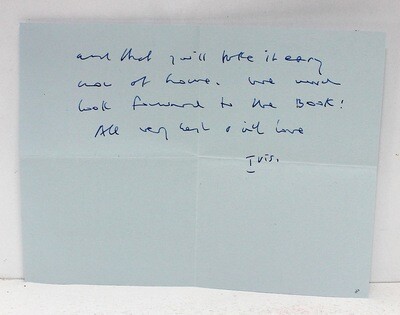 and that you'll take it easy
now at home. We much
look forward to the Book!
All very best & with love
Iris.